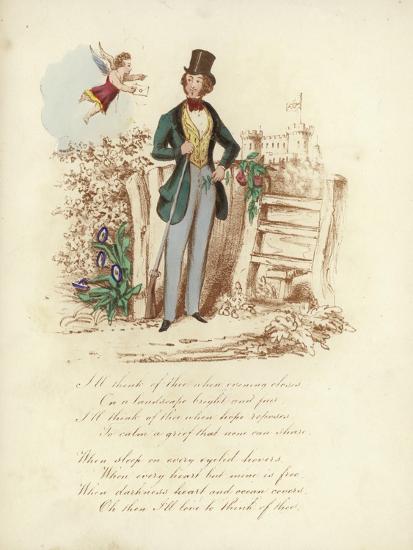 I'll think of thee when evening closes
On a landscape bright and fair
I'll think of thee when hope reposes
To calm a grief that none can share
When sleep on every eyelid hovers
When every heart but mine is free
When darkness heart and ocean covers
Oh then I'll love to think of thee.